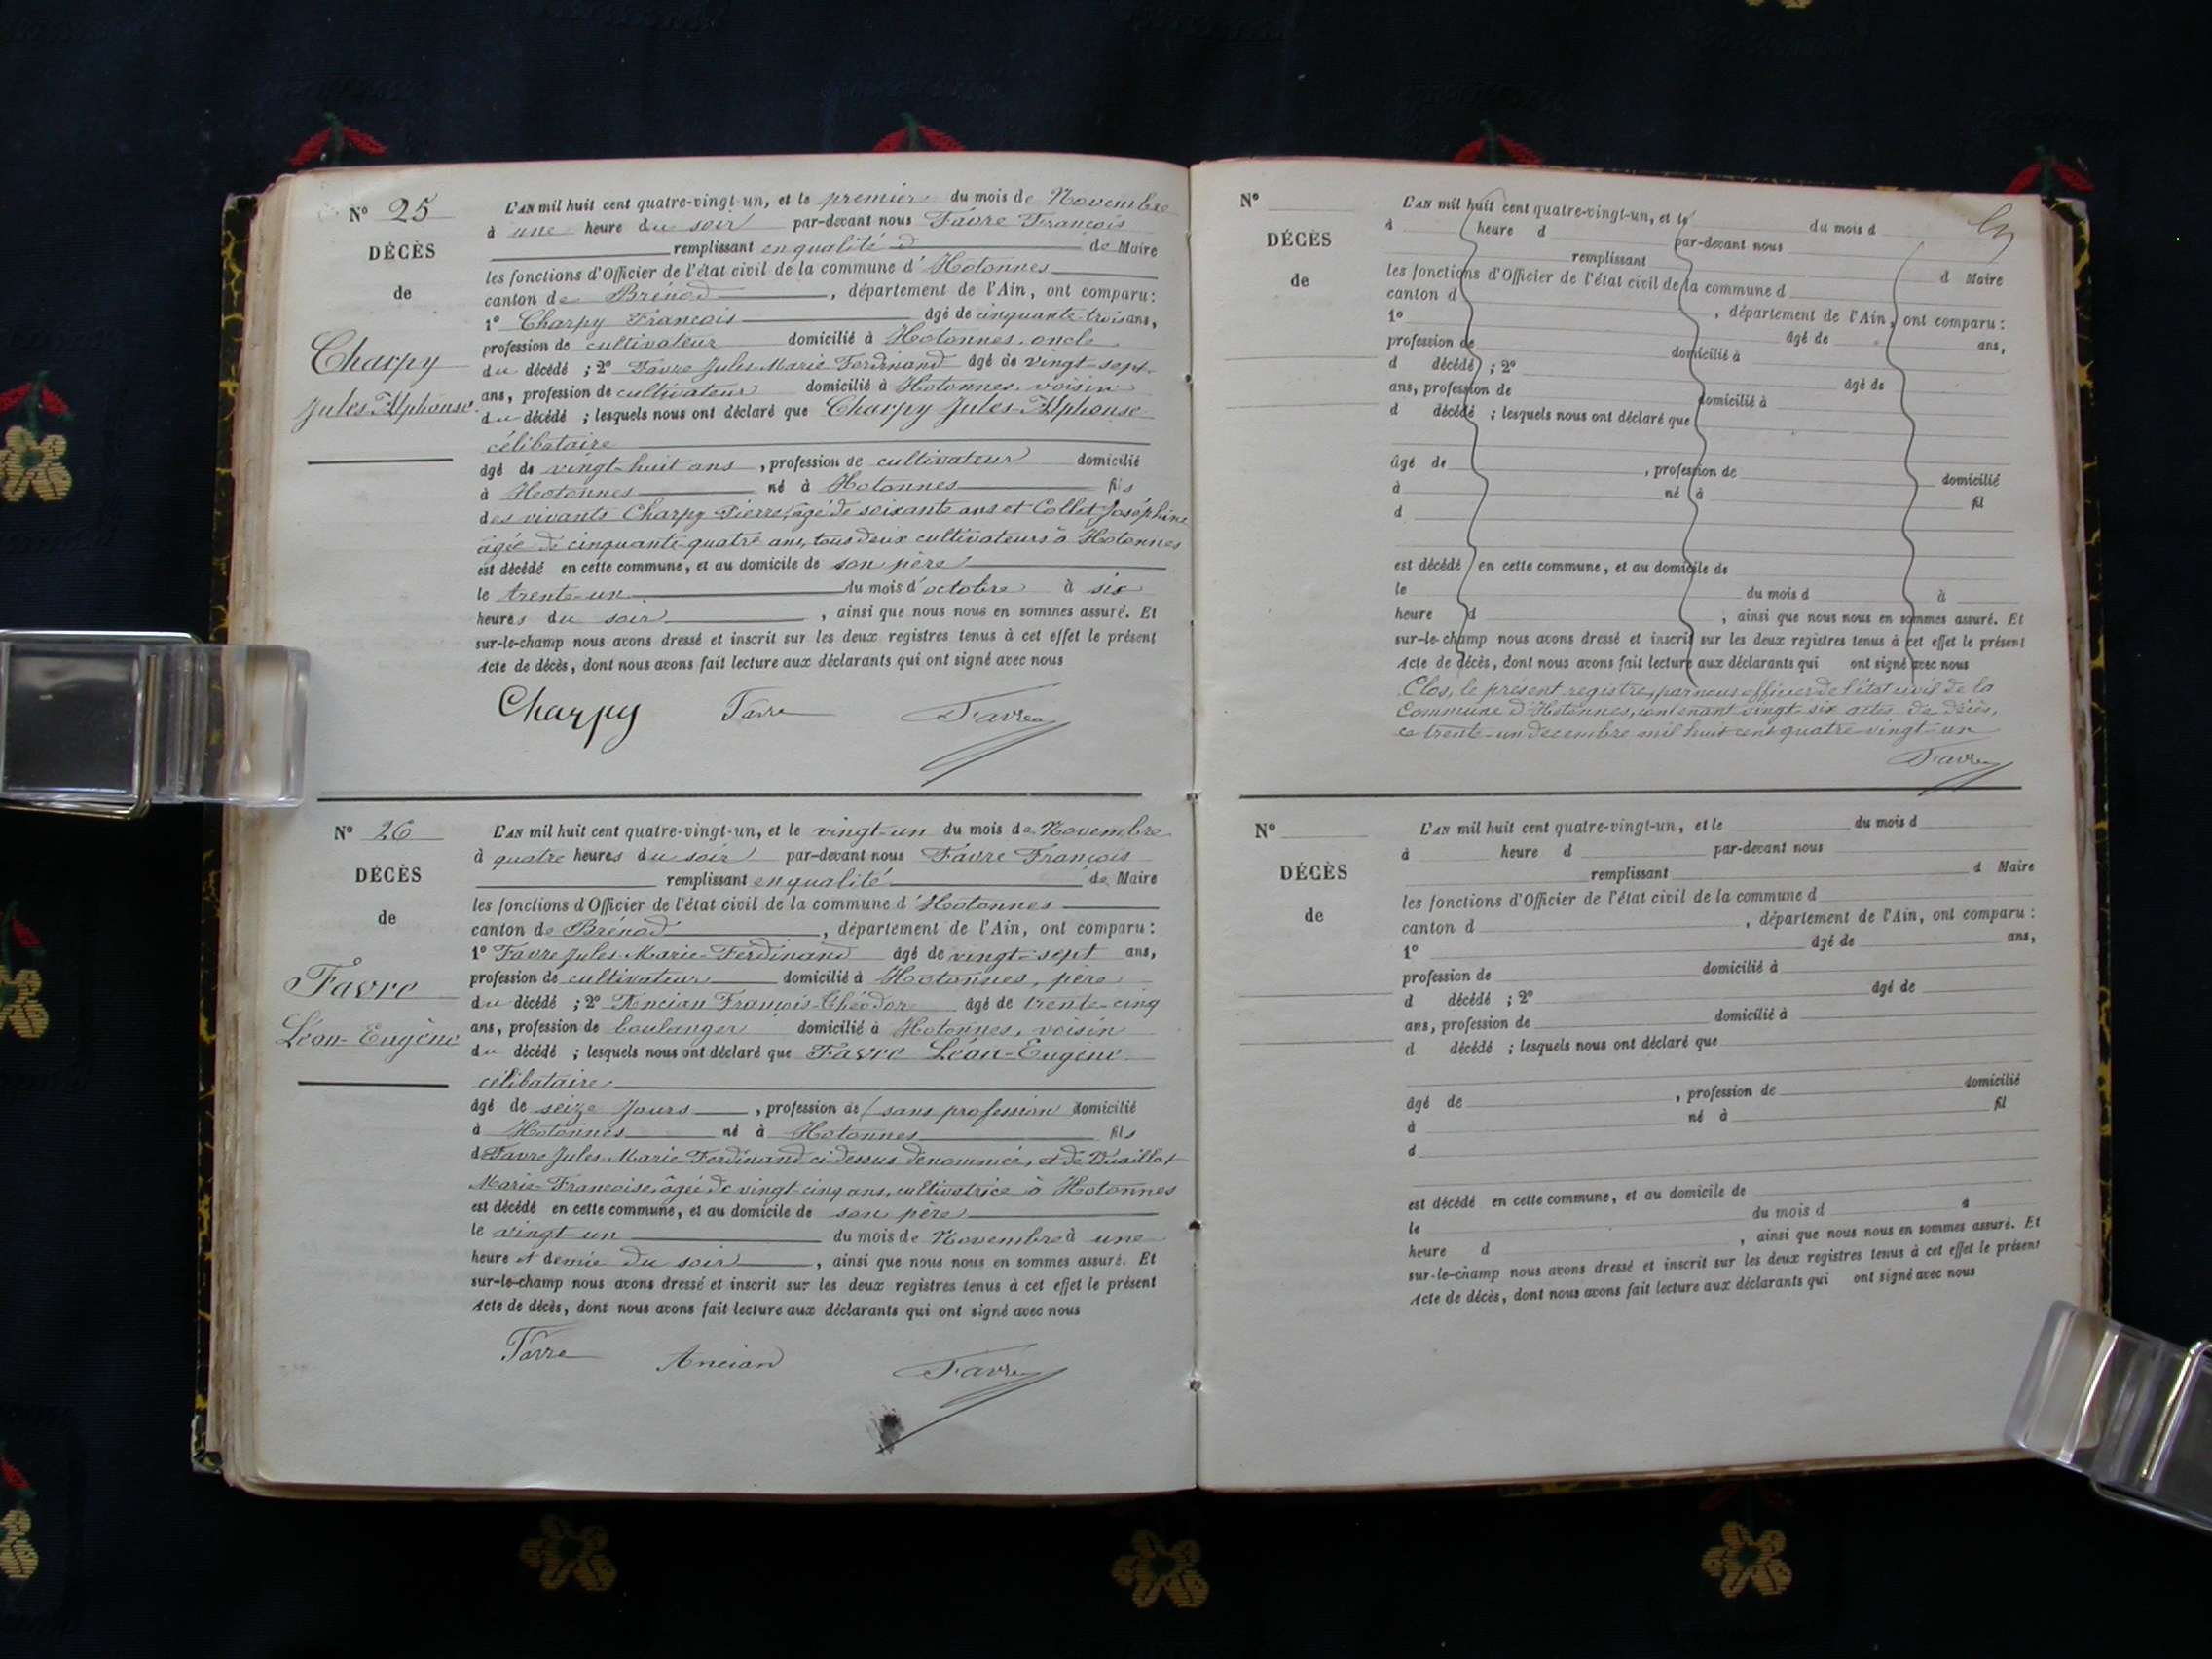 N° 25
DÉCÈS
de
Charpy
Jules Alphonse
L'AN mil huit cent quatre-vingt-un, et le premier du mois de Novembre
à une heure du soir par-devant nous Favre François
remplissant en qualité de Maire
les fonctions d'Officier de l'état civil de la commune d'Hotonnes
canton de Brénod, département de l'Ain, ont comparu :
1° Charpy François âgé de cinquante trois ans,
profession de cultivateur domicilié à Hotonnes, oncle
du décédé ; 2° Favre Jules Marie Ferdinand âgé de vingt-sept
ans, profession de cultivateur domicilié à Hotonnes, voisin
du décédé ; lesquels nous ont déclaré que Charpy Jules-Alphonse
célibataire
âgé de vingt-huit ans, profession de cultivateur domicilié
à Hotonnes né à Hotonnes fils
des vivants Charpy Pierre, âgé de soixante ans et Collet Joséphine
âgée de cinquante-quatre ans, tous deux cultivateurs à Hotonnes
est décédé en cette commune, et au domicile de son père
le trente-un du mois d'octobre à six
heures du soir, ainsi que nous nous en sommes assuré. Et
sur-le-champ nous avons dressé et inscrit sur les deux registres tenus à cet effet le présent
Acte de décès, dont nous avons fait lecture aux déclarants qui ont signé avec nous
Charpy Favre Favre
N° 26
DÉCÈS
de
Favre
Léon-Eugène
L'AN mil huit cent quatre-vingt-un, et le vingt-un du mois de Novembre
à quatre heures du soir par-devant nous Favre François
remplissant en qualité de Maire
les fonctions d'Officier de l'état civil de la commune d'Hotonnes
canton de Brénod, département de l'Ain, ont comparu :
1° Favre Jules-Marie-Ferdinand âgé de vingt-sept ans,
profession de cultivateur domicilié à Hotonnes, père
du décédé ; 2° Ancian François-Théodore âgé de trente-cinq
ans, profession de boulanger domicilié à Hotonnes, voisin
du décédé ; lesquels nous ont déclaré que Favre Léon-Eugène
célibataire
âgé de seize jours, profession de sans profession domicilié
à Hotonnes né à Hotonnes fils
d Favre Jules-Marie-Ferdinand ci-dessus dénommé, et de
Marie-Françoise, âgée de vingt-cinq ans, cultivatrice à Hotonnes
est décédé en cette commune, et au domicile de son père
le vingt-un du mois de Novembre à une
heure et demie du soir, ainsi que nous nous en sommes assuré. Et
sur-le-champ nous avons dressé et inscrit sur les deux registres tenus à cet effet le présent
Acte de décès, dont nous avons fait lecture aux déclarants qui ont signé avec nous
Favre Ancian Favre
N°
DÉCÈS
de
L'AN mil huit cent quatre-vingt-un, et le du mois d
à heure d par-devant nous
remplissant d Maire
les fonctions d'Officier de l'état civil de la commune d
canton d , département de l'Ain, ont comparu :
1° âgé de ans,
profession de domicilié à
d décédé ; 2° âgé de
ans, profession de domicilié à
d décédé ; lesquels nous ont déclaré que
âgé de , profession de domicilié
à né à fil
d
est décédé en cette commune, et au domicile de
le du mois d à
heure d , ainsi que nous nous en sommes assuré. Et
sur-le-champ nous avons dressé et inscrit sur les deux registres tenus à cet effet le présent
Acte de décès, dont nous avons fait lecture aux déclarants qui ont signé avec nous
Clos, le présent registre, par nous officier de l'état civil de la
Commune d'Hotonnes, contenant vingt-six actes de décès,
ce trente-un décembre mil huit cent quatre-vingt-un
Favre
N°
DÉCÈS
de
L'AN mil huit cent quatre-vingt-un, et le du mois d
à heure d par-devant nous
remplissant d Maire
les fonctions d'Officier de l'état civil de la commune d
canton d , département de l'Ain, ont comparu :
1° âgé de ans,
profession de domicilié à
d décédé ; 2° âgé de
ans, profession de domicilié à
d décédé ; lesquels nous ont déclaré que
âgé de , profession de domicilié
à né à fil
d
est décédé en cette commune, et au domicile de
le du mois d à
heure d , ainsi que nous nous en sommes assuré. Et
sur-le-champ nous avons dressé et inscrit sur les deux registres tenus à cet effet le présent
Acte de décès, dont nous avons fait lecture aux déclarants qui ont signé avec nous